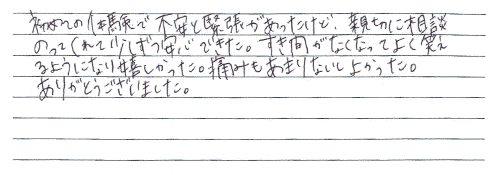 初めての体験で不安と緊張があったけど、親切に相談
のってくれて少しずつ安心できた。すき間がなくなってよく笑え
るようになり嬉しかった。痛みもあまりないしよかった。
ありがとうございました。